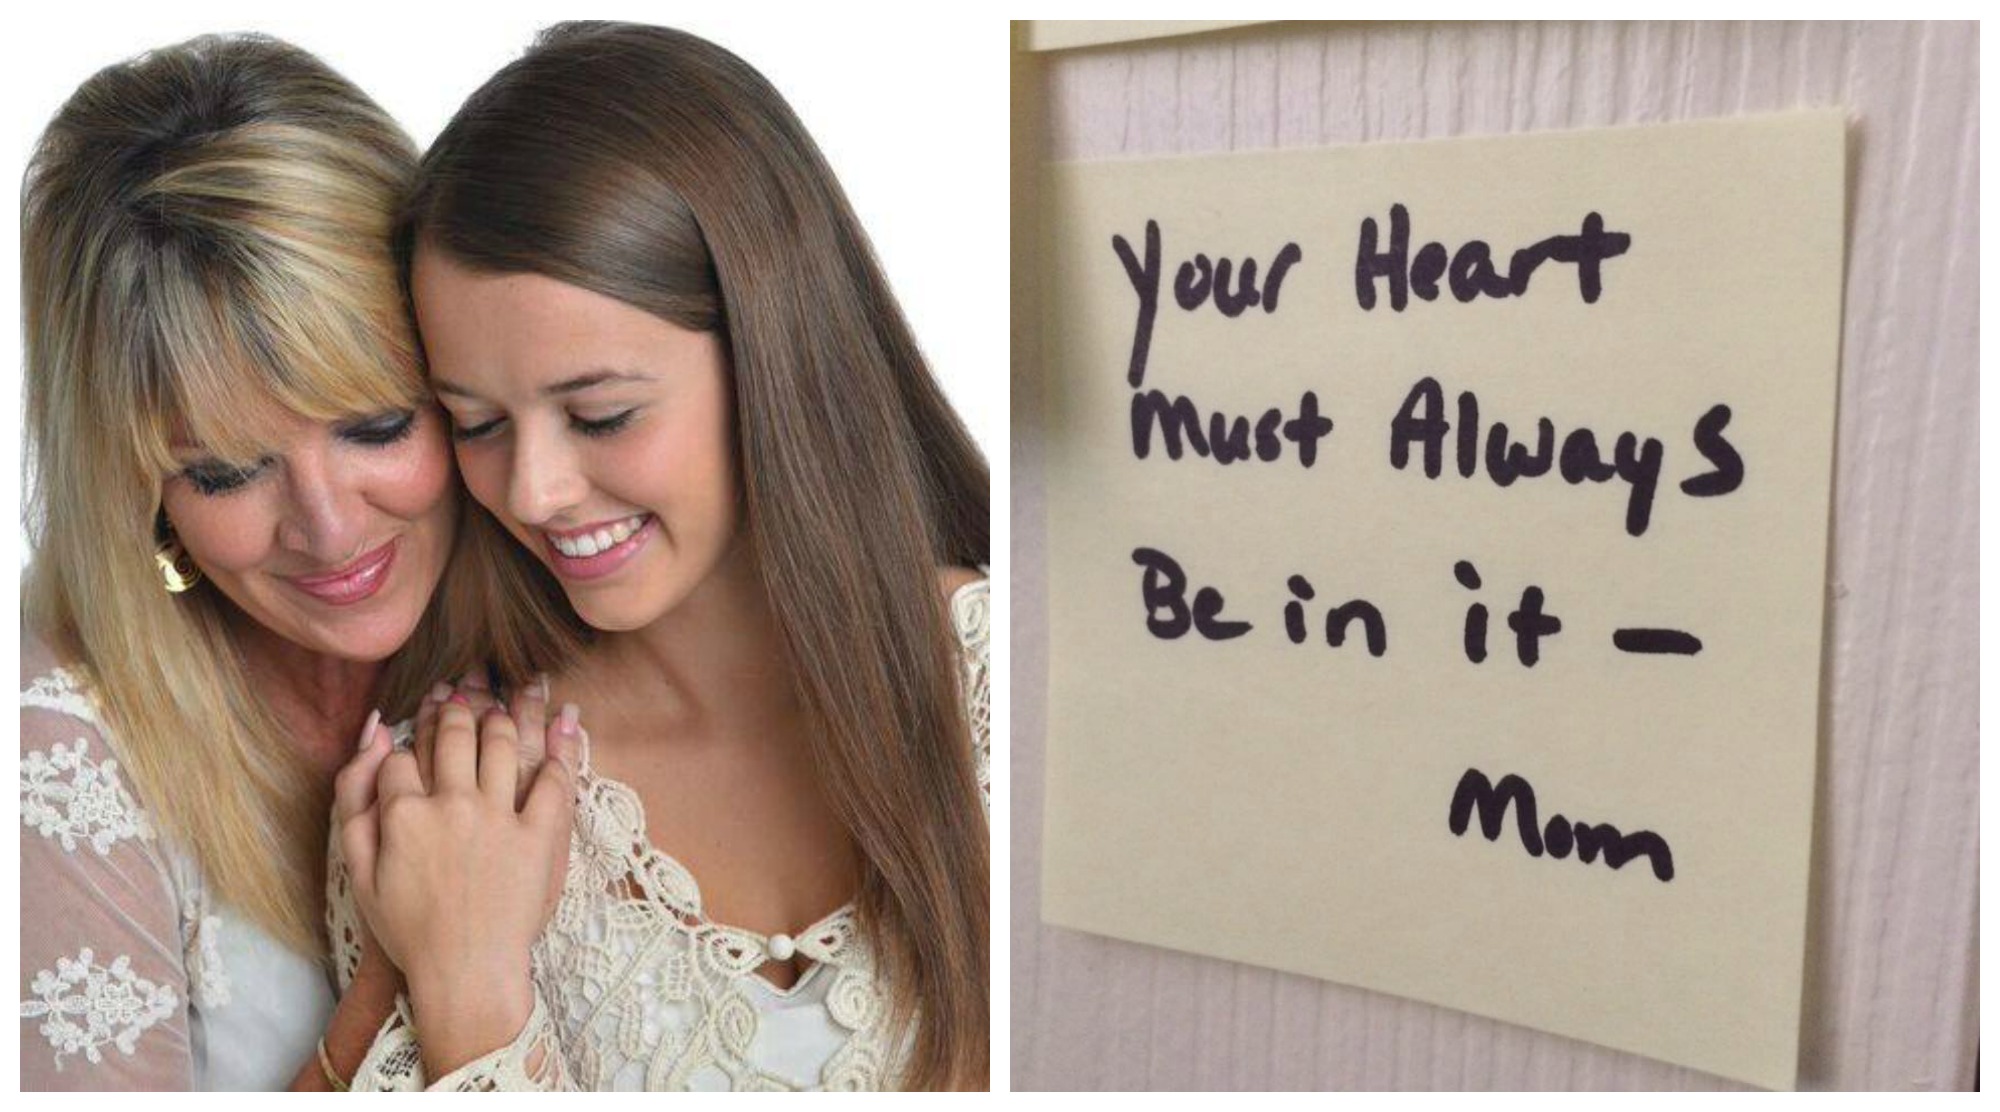 Your Heart
Must Always
Be in it -
Mom